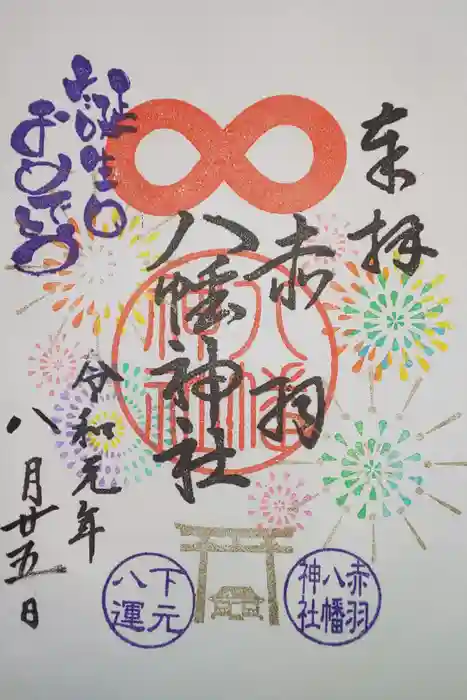 奉拝
赤羽
八幡神社
八幡
神社
令和元年
八月廿五日
誕生日
おめでとう
赤羽
八幡
神社
下元
八運